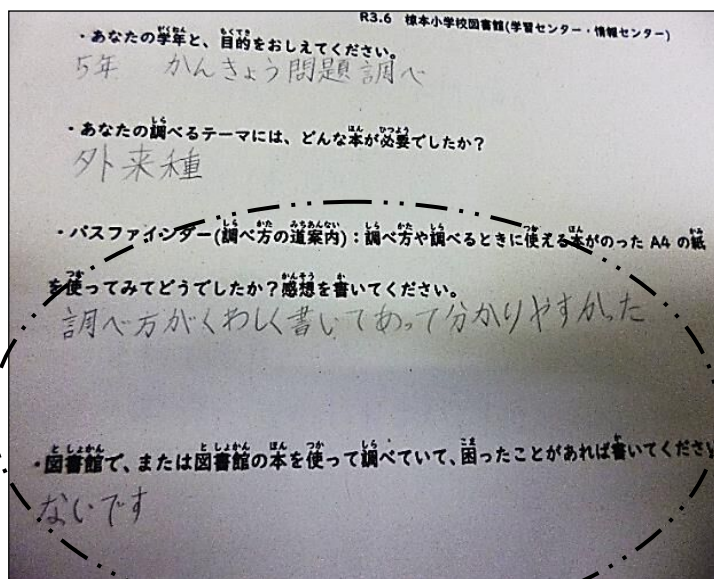 R3.6 椋本小学校図書館(学習センター・情報センター)
・あなたの学年と、目的をおしえてください。
5年 かんきょう問題調べ
・あなたの調べるテーマには、どんな本が必要でしたか?
外来種
・パスファインダー(調べ方の道案内):調べ方や調べるときに使える本がのった A4 の紙
を使ってみてどうでしたか?感想を書いてください。
調べ方がくわしく書いてあって分かりやすかった
・図書館で、または図書館の本を使って調べていて、困ったことがあれば書いてくださ
ないです